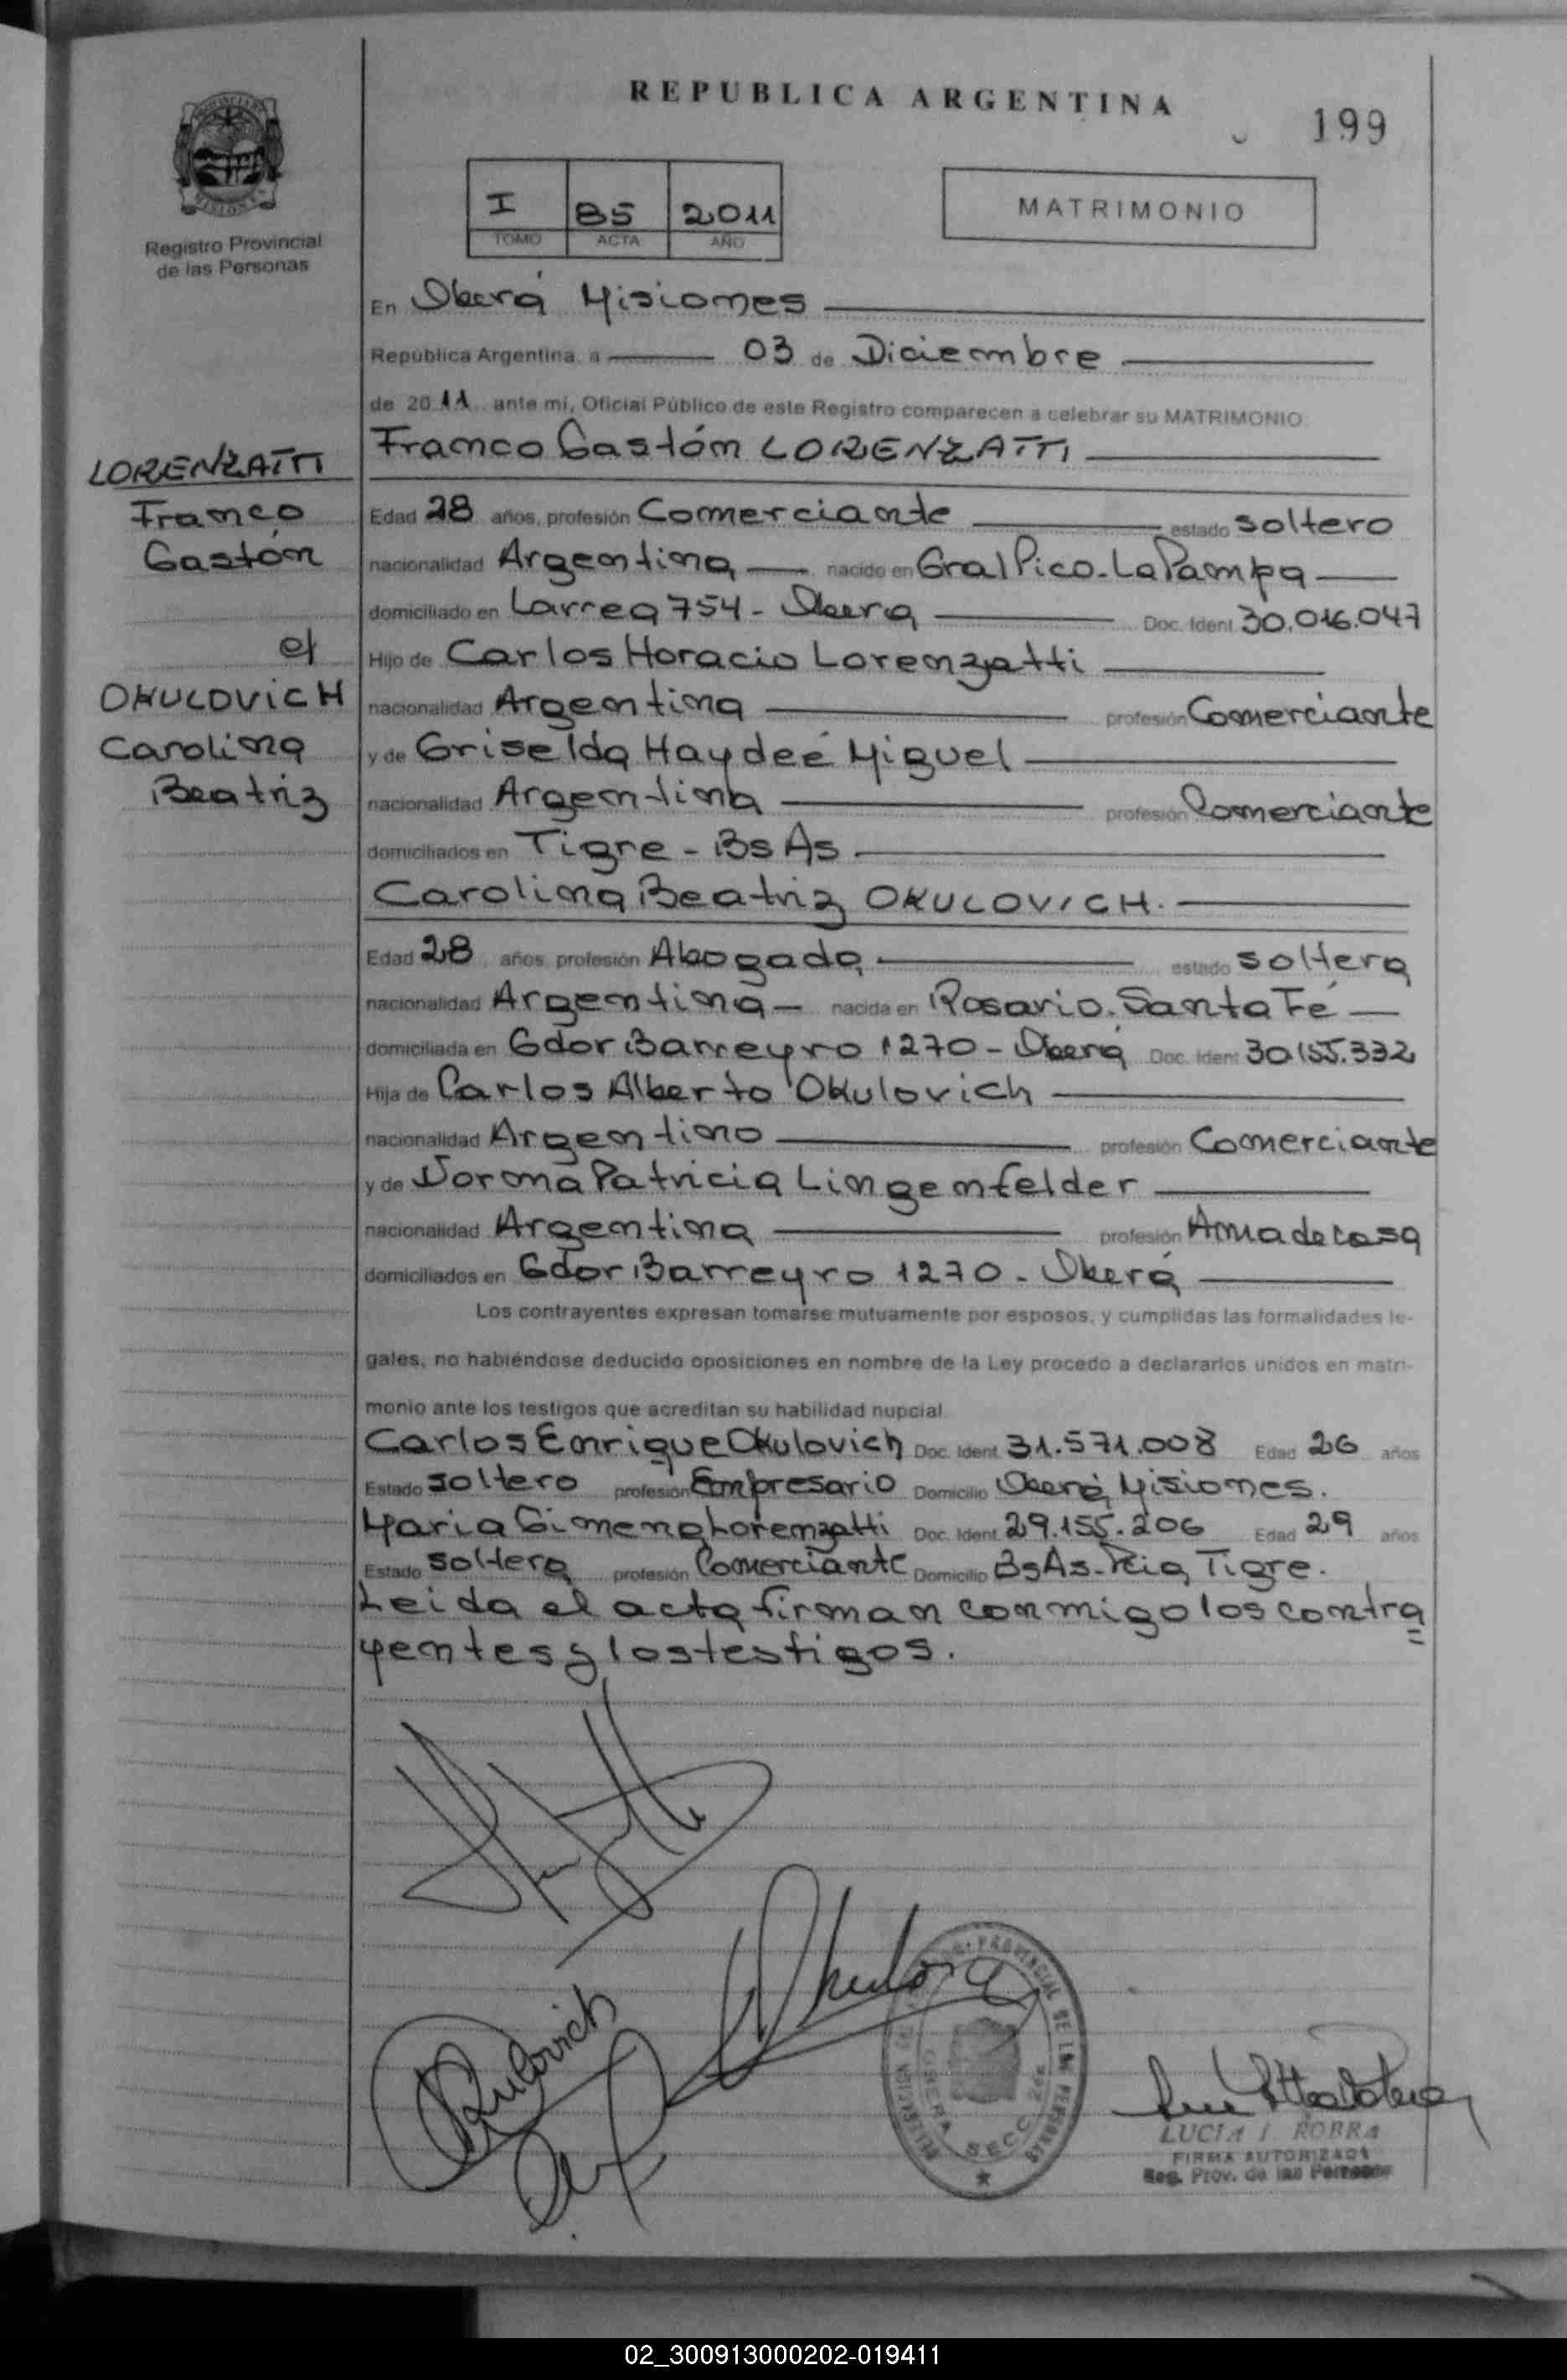 REPUBLICA ARGENTINA
199
I
85
2011
TOMO
ACTA
AÑO
MATRIMONIO
Registro Provincial
de las Personas
En Oberá Misiones
República Argentina, a 03 de Diciembre
de 2011 ante mi, Oficial Público de este Registro comparecen a celebrar su MATRIMONIO
Franco Gastón LORENZATTI
LORENZATTI
Franco
Gastón
c/
OKULOVICH
Carolina
Beatriz
Edad 28 años, profesión Comerciante estado soltero
nacionalidad Argentina nacido en Gral Pico - La Pampa
domiciliado en Larrea 754 - Oberá Doc. Ident. 30.016.047
Hijo de Carlos Horacio Lorenzatti
nacionalidad Argentina profesión Comerciante
y de Griselda Haydeé Miguel
nacionalidad Argentina profesión Comerciante
domiciliados en Tigre - Bs As
Carolina Beatriz OKULOVICH.
Edad 28 años profesión Abogada estado soltera
nacionalidad Argentina nacida en Rosario. Santa Fé
domiciliada en Gdor Barreyro 1270 - Oberá Doc. Ident 30.155.332
Hija de Carlos Alberto Okulovich
nacionalidad Argentino profesión Comerciante
y de Norma Patricia Lingenfelder
nacionalidad Argentina profesión Ama de casa
domiciliados en Gdor Barreyro 1270 - Oberá
Los contrayentes expresan tomarse mutuamente por esposos, y cumplidas las formalidades le-
gales, no habiéndose deducido oposiciones en nombre de la Ley procedo a declararlos unidos en matri-
monio ante los testigos que acreditan su habilidad nupcial.
Carlos Enrique Okulovich Doc. Ident. 31.571.008 Edad 26 años
Estado soltero profesión Empresario Domicilio Oberá Misiones.
Maria Gimena Lorenzatti Doc. Ident. 29.155.206 Edad 29 años
Estado soltera profesión Comerciante Domicilio Bs As - Pcia, Tigre.
Leida el acta firman conmigo los contra
yentes y los testigos.
Okulovich
SECC. 2da
LUCIA I ROBRA
FIRMA AUTORIZADA
Reg. Prov. de las Personas
02_300913000202-019411